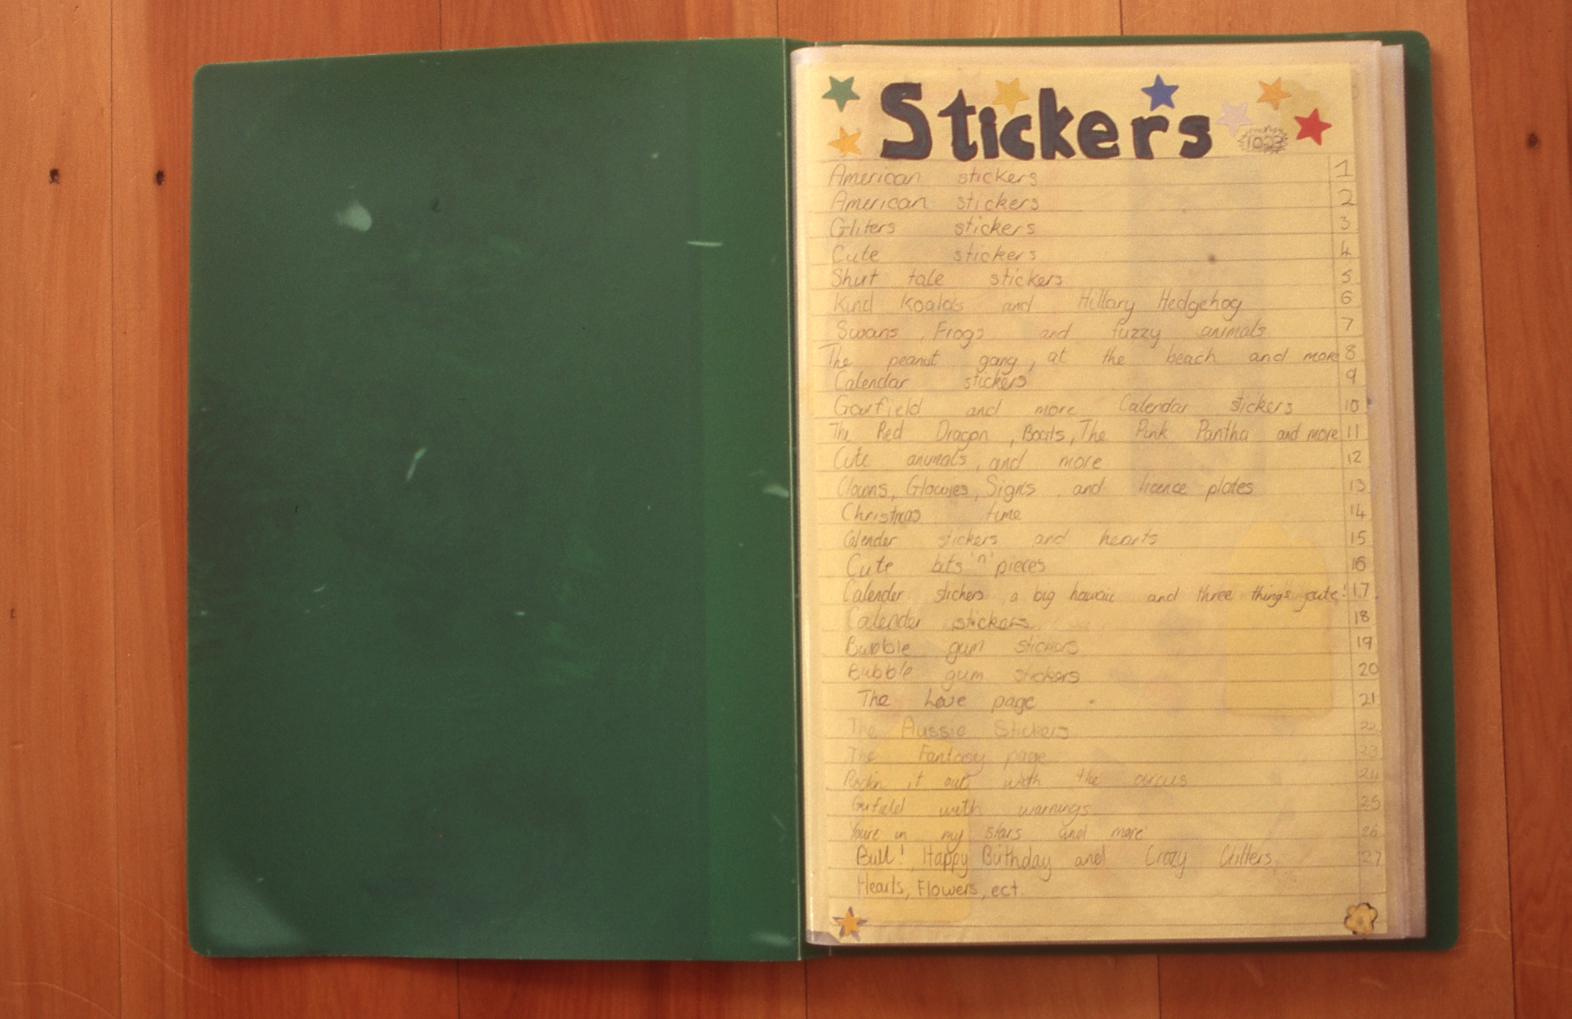 Stickers
American stickers 1
American stickers 2
Gliters stickers 3
Cute stickers 4
Shurt tale stickers 5
Kind Koalas and Hillary Hedgehog 6
Swans, Frogs and fuzzy animals 7
The peanut gang, at the beach and more 8
Calendar stickers 9
Garfield and more Calendar stickers 10
The Red Dragon, Boats, The Pink Pantha and more 11
Cute animals, and more 12
Clowns, Glowies, Signs, and licence plates 13
Christmas time 14
Calender stickers and hearts 15
Cute bits 'n' pieces 16
Calender stickers a big hawaii and three things cute! 17
Calender stickers 18
Bubble gum stickers 19
Bubble gum stickers 20
The Love page 21
The Aussie Stickers 22
The Fantasy page 23
Rockin it out with the circus 24
Garfield with warnings 25
You're in my stars and more 26
Bull! Happy Birthday and Crazy Critters 27
Hearts, Flowers, ect.